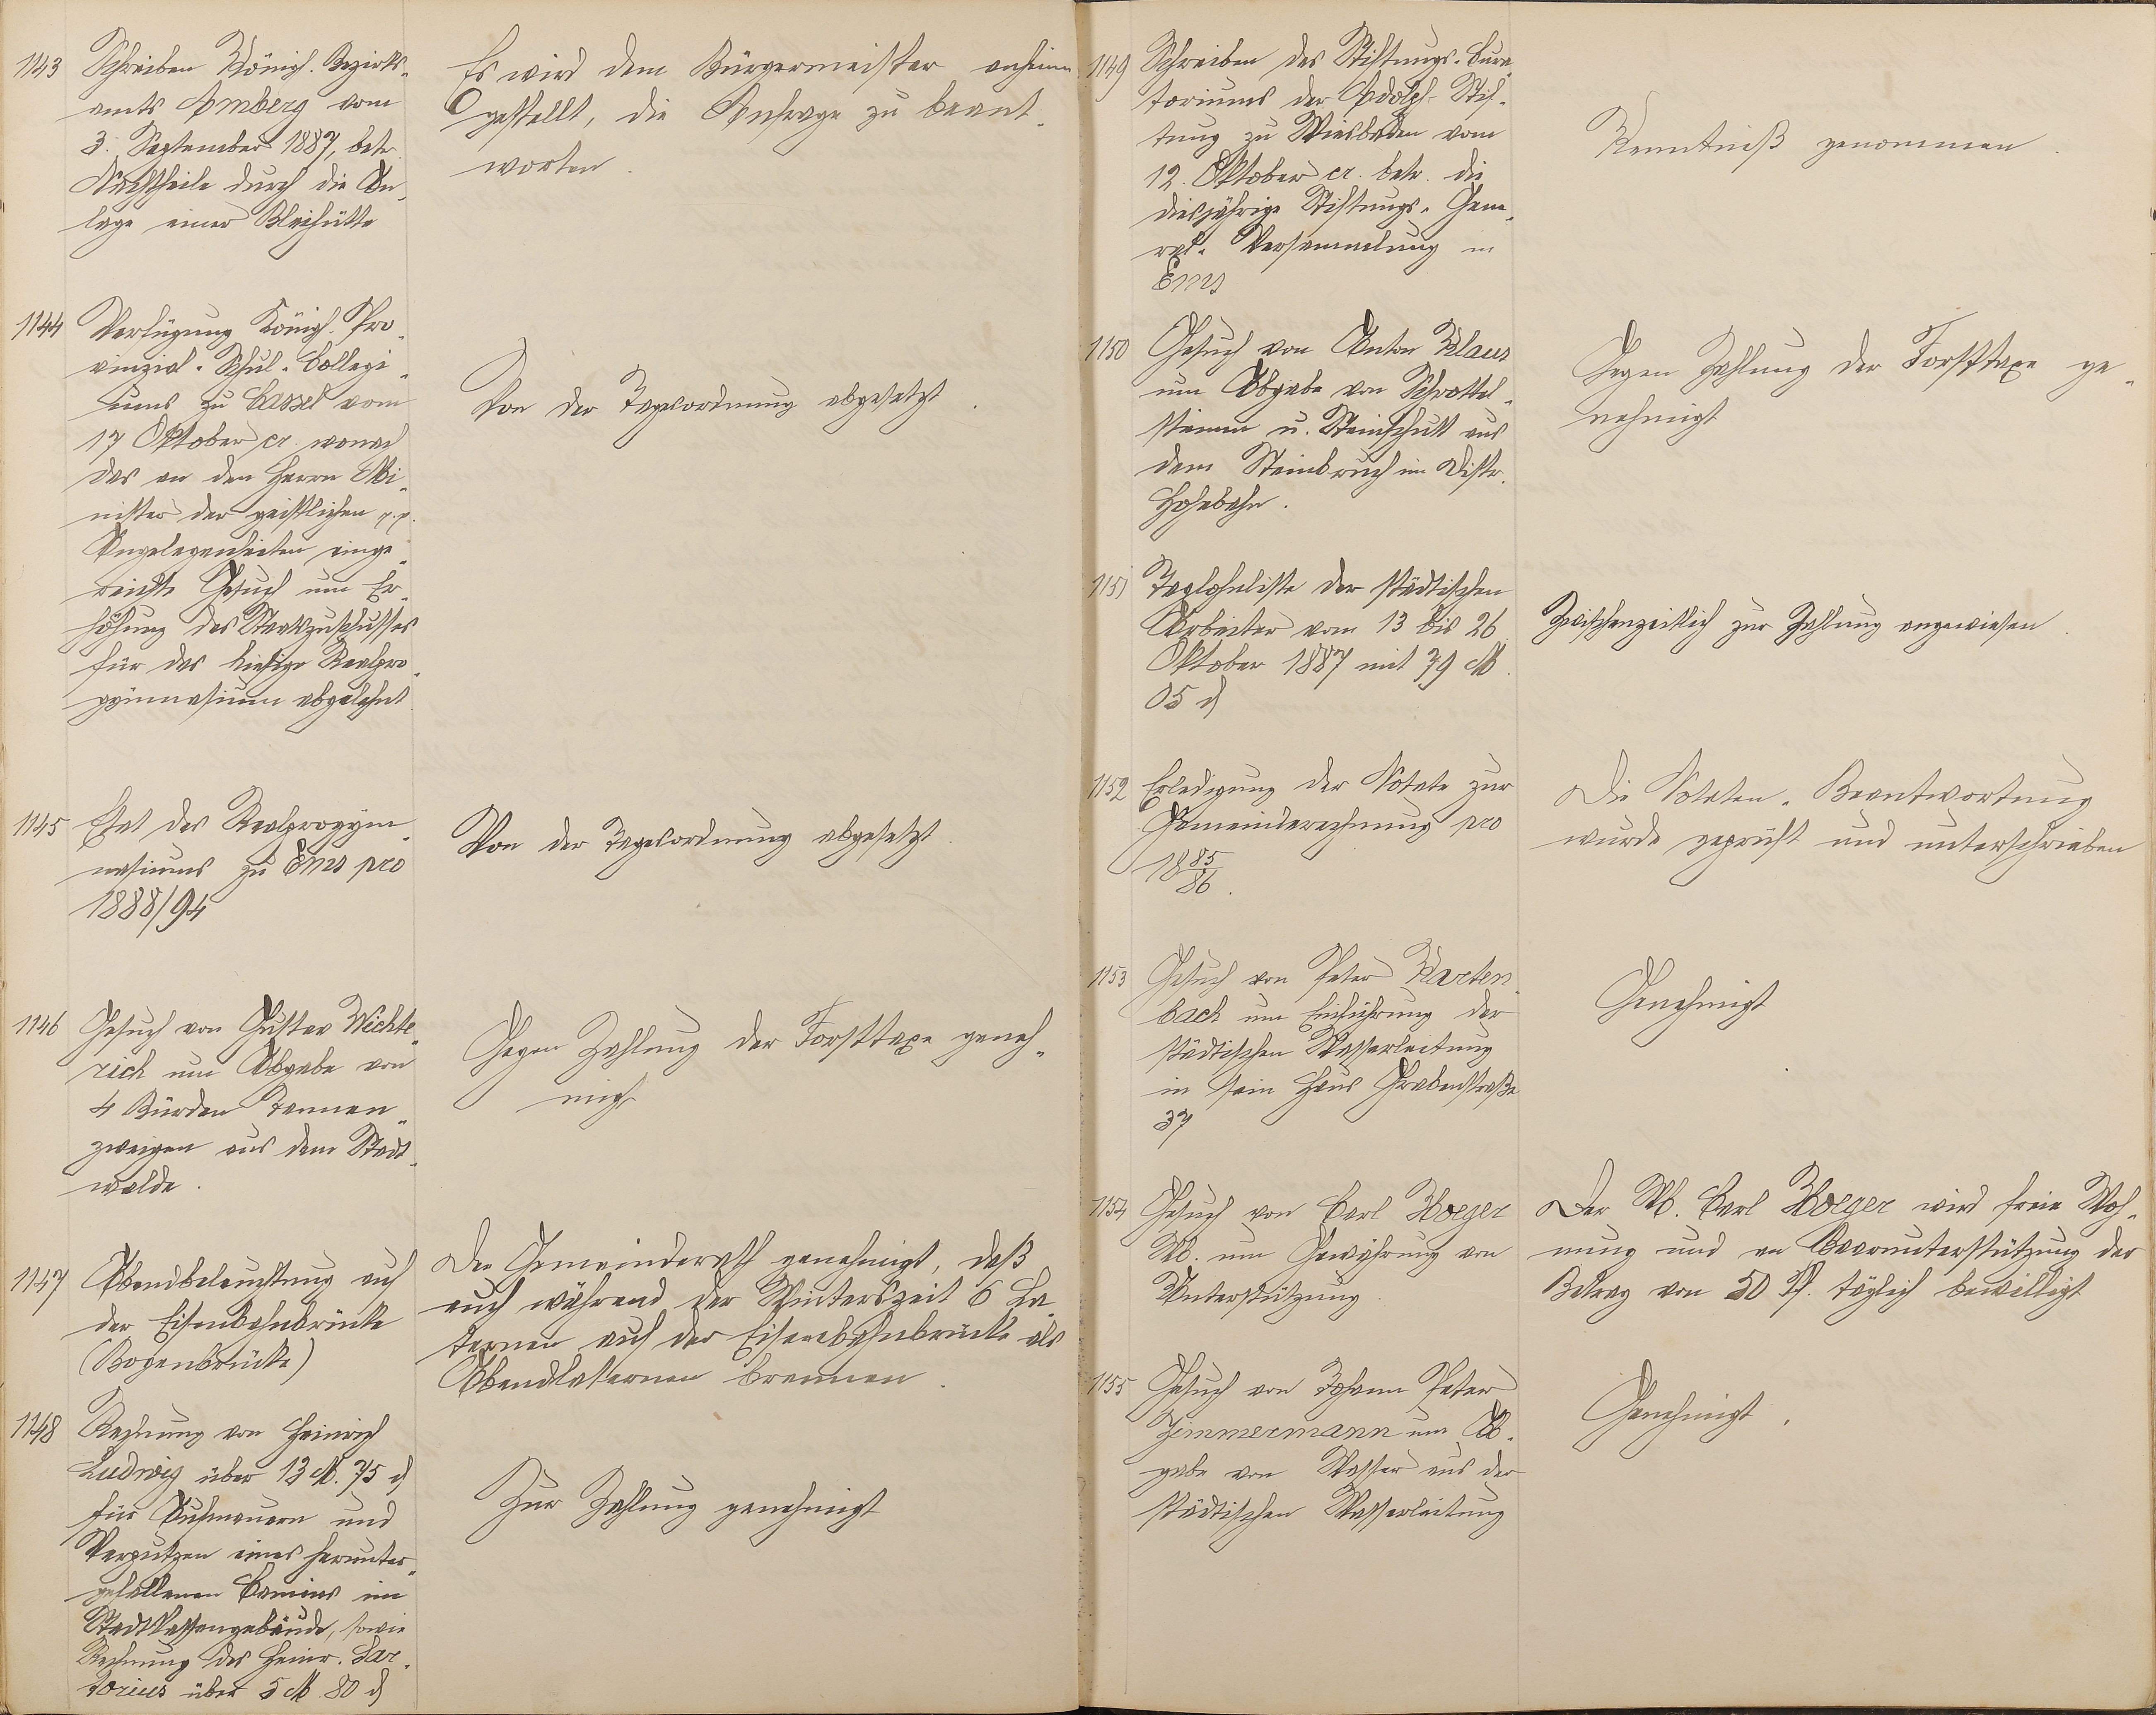 1143 Schreiben Königl. Bezirks-
amts Amberg vom
3. September 1887, betr.
Nachtheile durch die An-
lage einer Bleihütte
Es wird dem Bürgermeister anheim
gestellt, die Anfrage zu beant-
worten.
1144 Verfügung Königl. Pro-
vinzial-Schul-Collegi-
ums zu Cassel vom
17 Oktober cr. wonach
das an den Herrn Mi-
nister der geistlichen p.p.
Angelegenheiten einge-
reichte Gesuch um Er-
höhung des Staatszuschusses
für das hiesige Realpro-
gymnasium abgelehnt
Von der Tagesordnung abgesetzt.
1145 Etat des Realprogym-
nasiums zu Ems pro
1888/94
Von der Tagesordnung abgesetzt.
1146 Gesuch von Gustav Wichte-
rich um Abgabe von
4 Bürden Tannen-
zweigen aus dem Stadt-
walde.
Gegen Zahlung der Forsttaxe geneh-
migt
1147 Abendbeleuchtung auf
der Eisenbahnbrücke
(Bogenbrücke)
Der Gemeinderath genehmigt, daß
auch während der Winterszeit 6 La-
ternen auf der Eisenbahnbrücke als
Abendlaternen brennen.
1148 Rechnung von Heinrich
Ludwig über 13 M. 75 d
für Aufmauern und
Verputzen eines herunter-
gefallenen Camins im
Stadtkassengebäude, sowie
Rechnung des Heinr. Sar-
torius über 5 M. 80 d
Zur Zahlung genehmigt
1149 Schreiben des Stiftungs-Cura-
toriums der Adolph-Stif-
tung zu Wiesbaden vom
12. Oktober cr. betr. die
diesjährige Stiftungs-Gene-
ral-Versammlung in
Ems
Kenntniß genommen.
1150 Gesuch von Anton Klaus
um Abgabe von Schrottel-
steinen u. Steinschutt aus
dem Steinbruch im Distr.
Hohebahn.
Gegen Zahlung der Forsttaxe ge-
nehmigt
1151 Taglohnliste der städtischen
Arbeiter vom 13 bis 26
Oktober 1887 mit 79 M.
05 d
Zwischenzeitlich zur Zahlung angewiesen.
1152 Erledigung der Notate zur
Gemeinderechnung pro
1885/86.
Die Notaten-Beantwortung
wurde geprüft und unterschrieben
1153 Gesuch von Peter Karten-
bach um Einführung der
städtischen Wasserleitung
in sein Haus Grabenstraße
37
Genehmigt
1154 Gesuch von Carl Hoeger
Wb. um Gewährung von
Unterstützung.
Der Wb. Carl Hoeger wird freie Woh-
nung und an Baarunterstützung der
Betrag von 50 Pf. täglich bewilligt
1155 Gesuch von Johann Peter
Zimmermann um Ab-
gabe von Wasser aus der
städtischen Wasserleitung
Genehmigt.